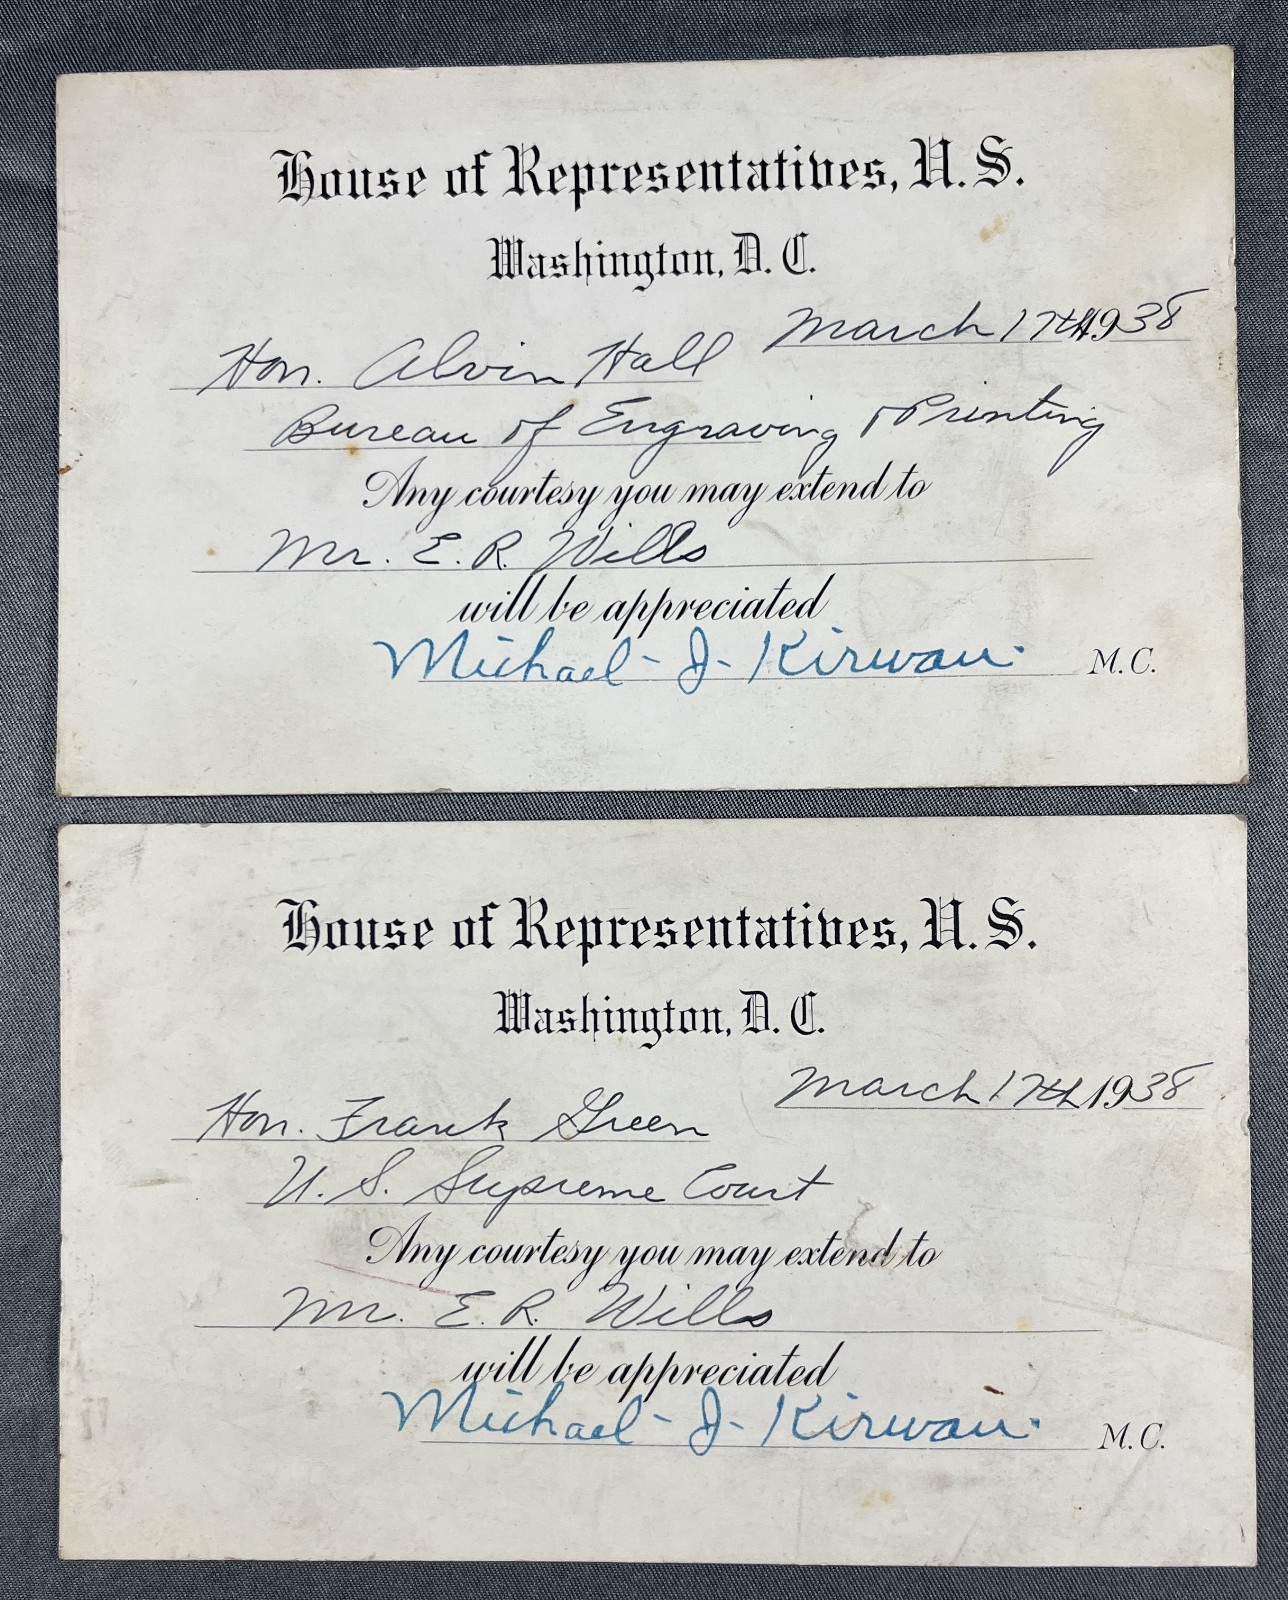 House of Representatives, U.S.
Washington, D.C.
March 17th 1938
Hon. Alvin Hall
Bureau of Engraving & Printing
Any courtesy you may extend to
Mr. E. R. Wills
will be appreciated
Michael - J - Kirwan. M.C.
House of Representatives, U.S.
Washington, D.C.
March 17th 1938
Hon. Frank Green
U. S. Supreme Court
Any courtesy you may extend to
Mr. E. R. Wills
will be appreciated
Michael - J - Kirwan. M.C.